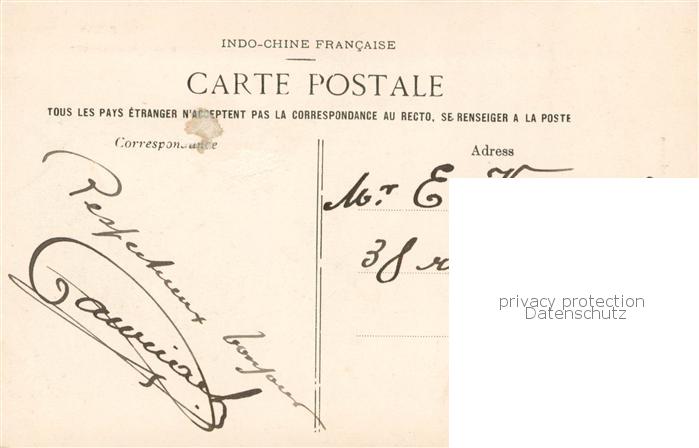 INDO-CHINE FRANÇAISE
CARTE POSTALE
TOUS LES PAYS ÉTRANGER N'ACCEPTENT PAS LA CORRESPONDANCE AU RECTO, SE RENSEIGER A LA POSTE
Correspondance
Adress
Mr E.
38 r
privacy protection
Datenschutz
Respectueux bonjour